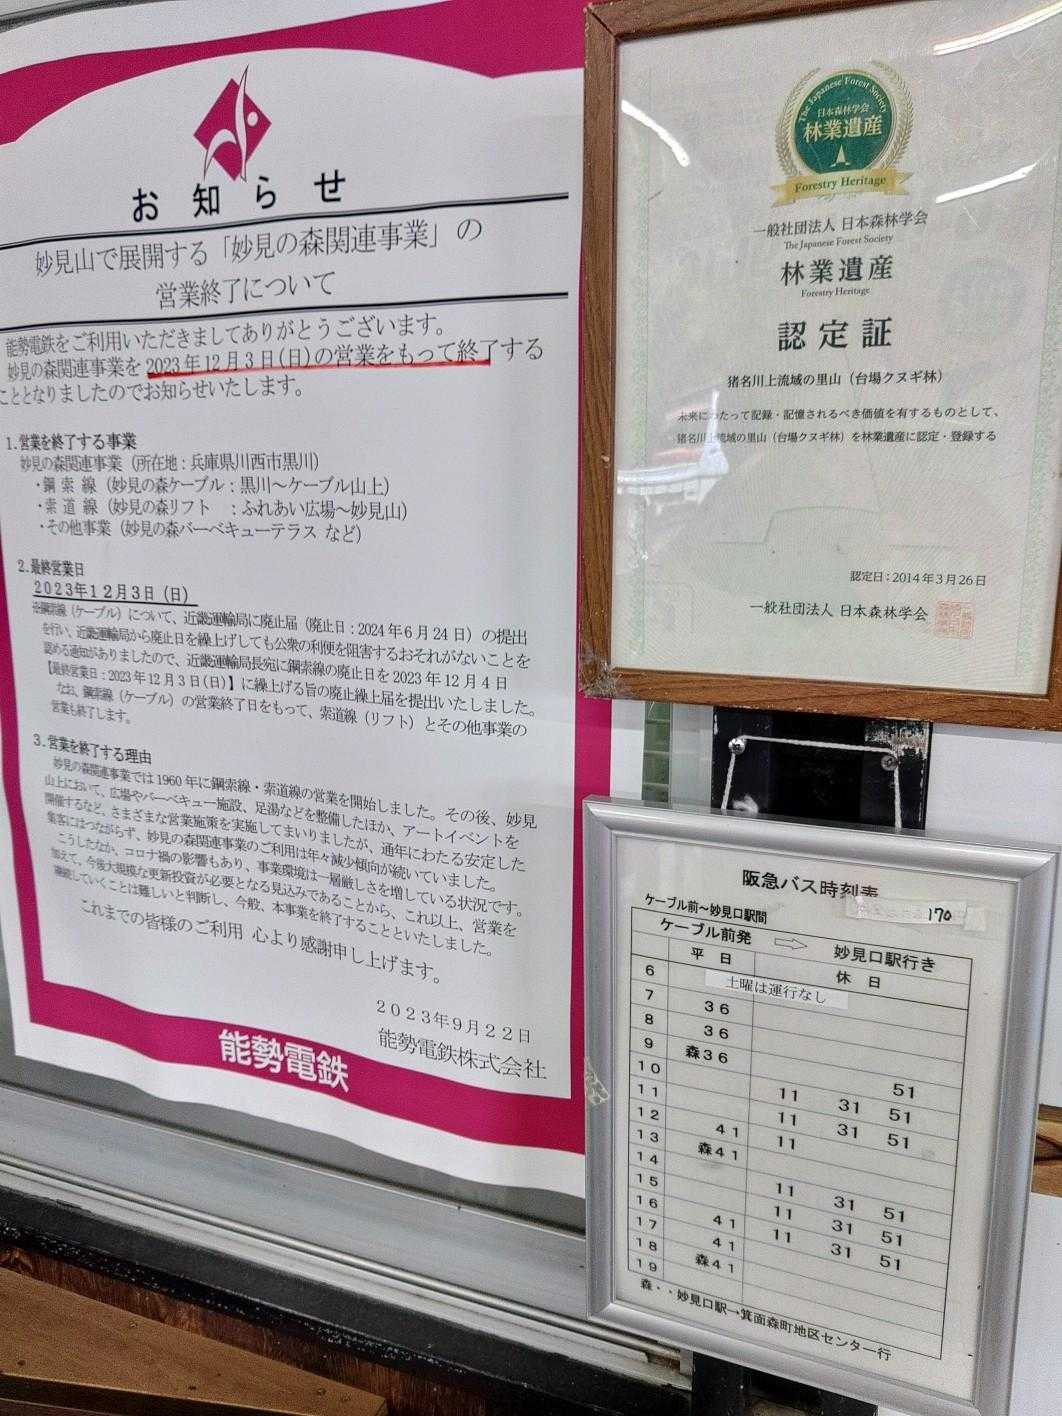 お知らせ
妙見山で展開する「妙見の森関連事業」の
営業終了について
能勢電鉄をご利用いただきましてありがとうございます。
妙見の森関連事業を2023年12月3日(日)の営業をもって終了する
こととなりましたのでお知らせいたします。
1.営業を終了する事業
妙見の森関連事業(所在地:兵庫県川西市黒川)
・鋼索線(妙見の森ケーブル:黒川～ケーブル山上)
・索道線(妙見の森リフト :ふれあい広場～妙見山)
・その他事業(妙見の森バーベキューテラス など)
2.最終営業日
2023年12月3日(日)
※鋼索線(ケーブル)について、近畿運輸局に廃止届(廃止日:2024年6月24日)の提出
を行い、近畿運輸局から廃止日を繰上げしても公衆の利便を阻害するおそれがないことを
認める通知がありましたので、近畿運輸局長宛に鋼索線の廃止日を2023年12月4日
【最終営業日:2023年12月3日(日)】に繰上げる旨の廃止繰上届を提出いたしました。
なお、鋼索線(ケーブル)の営業終了日をもって、索道線(リフト)とその他事業の
営業も終了します。
3.営業を終了する理由
妙見の森関連事業では1960年に鋼索線・索道線の営業を開始しました。その後、妙見
山上において、広場やバーベキュー施設、足湯などを整備したほか、アートイベントを
開催するなど、さまざまな営業施策を実施してまいりましたが、通年にわたる安定した
集客にはつながらず、妙見の森関連事業のご利用は年々減少傾向が続いていました。
こうしたなか、コロナ禍の影響もあり、事業環境は一層厳しさを増している状況です。
加えて、今後大規模な更新投資が必要となる見込みであることから、これ以上、営業を
継続していくことは難しいと判断し、今般、本事業を終了することといたしました。
これまでの皆様のご利用 心より感謝申し上げます。
2023年9月22日
能勢電鉄株式会社
能勢電鉄
The Japanese Forest Society
日本森林学会
林業遺産
Forestry Heritage
一般社団法人 日本森林学会
The Japanese Forest Society
林業遺産
Forestry Heritage
認定証
猪名川上流域の里山(台場クヌギ林)
未来にわたって記録・記憶されるべき価値を有するものとして、
猪名川上流域の里山(台場クヌギ林)を林業遺産に認定・登録する
認定日:2014年3月26日
一般社団法人 日本森林学会
阪急バス時刻表
170
ケーブル前～妙見口駅間
ケーブル前発 ⇨ 妙見口駅行き
平日 休日
土曜は運行なし
6
7 36
8 36
9 森36
10 51
11 11 31 51
12 41 11 31 51
13 森41 11
14
15 11 31 51
16 41 11 31 51
17 41 11 31 51
18 森41
19
森・・妙見口駅→箕面森町地区センター行